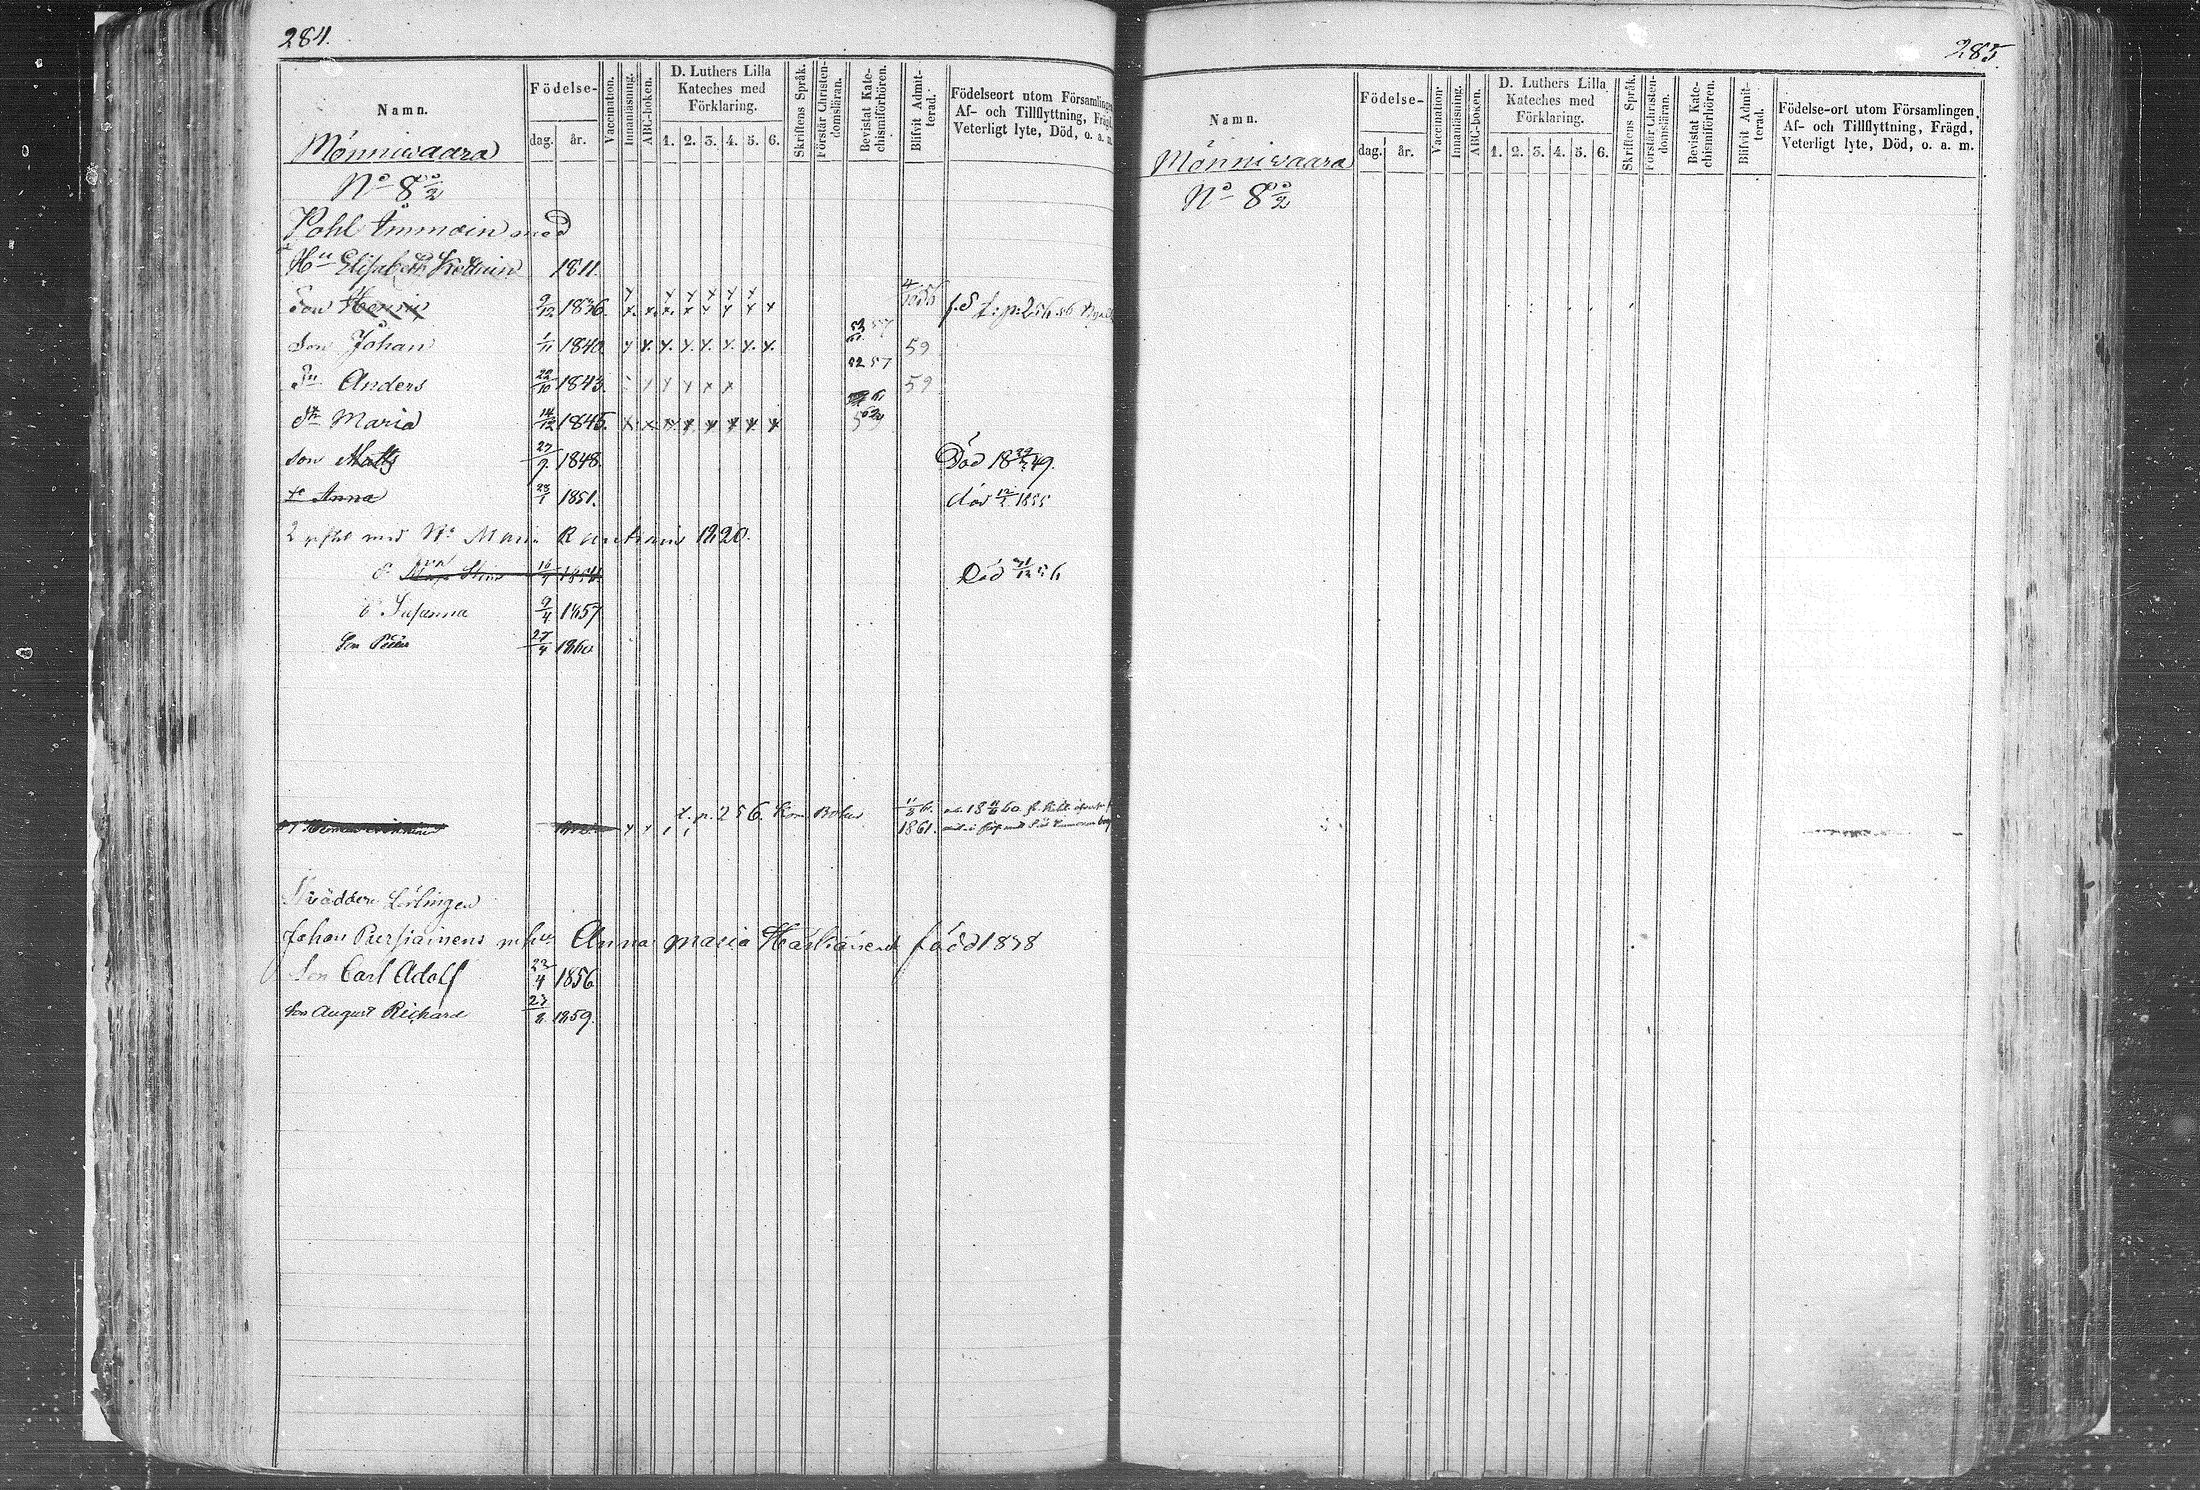 284.
Namn.
Födelse-
dag. år.
Vaccination.
Innanläsning.
ABC-boken.
D. Luthers Lilla
Kateches med
Förklaring.
1. 2. 3. 4. 5. 6.
Skriftens Språk.
Förstår Christen-
domsläran.
Bevistat Kate-
chismiförhören.
Blifvit Admit-
terad.
Födelseort utom Församlingen
Af- och Tillflyttning, Frägd,
Veterligt lyte, Död, o. a. m.
Mönniwaara
No 8
Pohl Immoin med
Hu Elisabeth 1811.
Son Henric 9/12 1836. x x x x x x x x x x x x x x
Son Johan 1/11 1840 x x x. x. x. x. x. x. 57 59
Sn Anders 22/10 1843. x x x x x 52 57 59
Dr Maria 14/12 1845. x x x x x x x x 59
Son Matts 27/9 1848. Död 18 49.
Anna 23/1 1851. död 12/2 1855
2 gift med Maria 1820.
Stina 16/1 1854 Död 31/12 56
d Susanna 9/4 1857
Son Petter 27/4 1860
t. p. 256. 1861.
Johan Pursiainens m hu Anna Maria född 1838
Son Carl Adolf 23/4 1856
Son August Richard 23/8 1859.
285.
Namn.
Födelse-
dag. år.
Vaccination
Innanläsning.
ABC-boken.
D. Luthers Lilla
Kateches med
Förklaring.
1. 2. 3. 4. 5. 6.
Skriftens Språk.
Förstår Christen-
domsläran.
Bevistat Kate-
chismiförhören.
Blifvit Admit-
terad.
Födelse-ort utom Församlingen,
Af- och Tillflyttning, Frägd,
Veterligt lyte, Död, o. a. m.
Mönniwaara
No 8